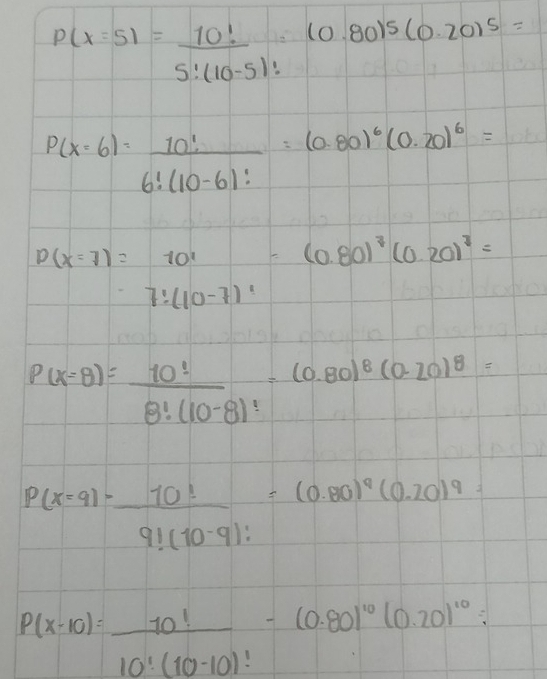 P(x=5) = 10! = (0.80)5 (0.20)5 =
5!(10-5)!
P(x=6)= 10! = (0.80)⁶ (0.20)⁶ =
6!(10-6)!
P(x=7)= 10! = (0.80)⁷ (0.20)⁷ =
7!(10-7)!
P(x=8)= 10! = (0.80)⁸ (0.20)⁸ =
8!(10-8)!
P(x=9)- 10! = (0.80)⁹ (0.20)9
9!(10-9)!
P(x-10)= 10! - (0.80)¹⁰ (0.20)¹⁰ =
10!(10-10)!